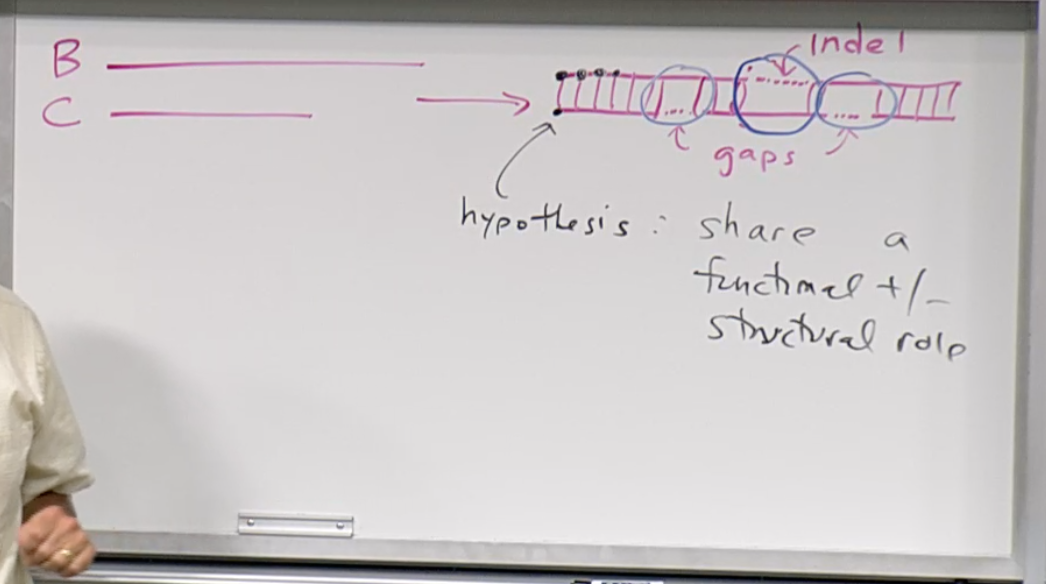 B
C
indel
gaps
hypothesis: share a
functional +/-
structural role